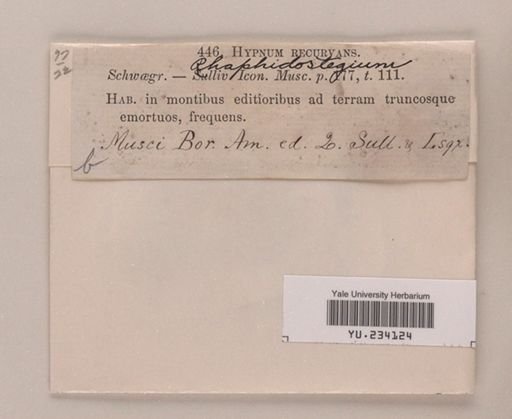 97
/22
446. HYPNUM RECURVANS.
Rhaphidostegium
Schwægr. — Sulliv. Icon. Musc. p. 177, t. 111.
HAB. in montibus editioribus ad terram truncosque
emortuos, frequens.
Musci Bor. Am. ed. 2. Sull. & Lsqx.
b
Yale University Herbarium
YU.234124